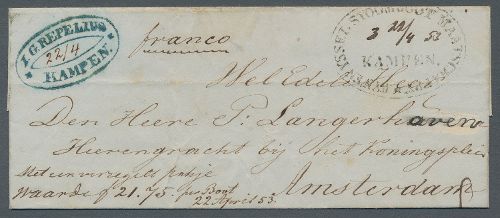 I. G. REPELIUS
22/4
KAMPEN.
franco
IJSSEL STOOMBOOT MAATSCHAPPIJ
3 22/4 53
KAMPEN.
Wel Edele
Den Heere P. Langerhuizen
Heerengracht bij het Koningsplein
Amsterdam
Met een verzegeld pakje
Waarde f 21.75 per Boot
22 April 53.